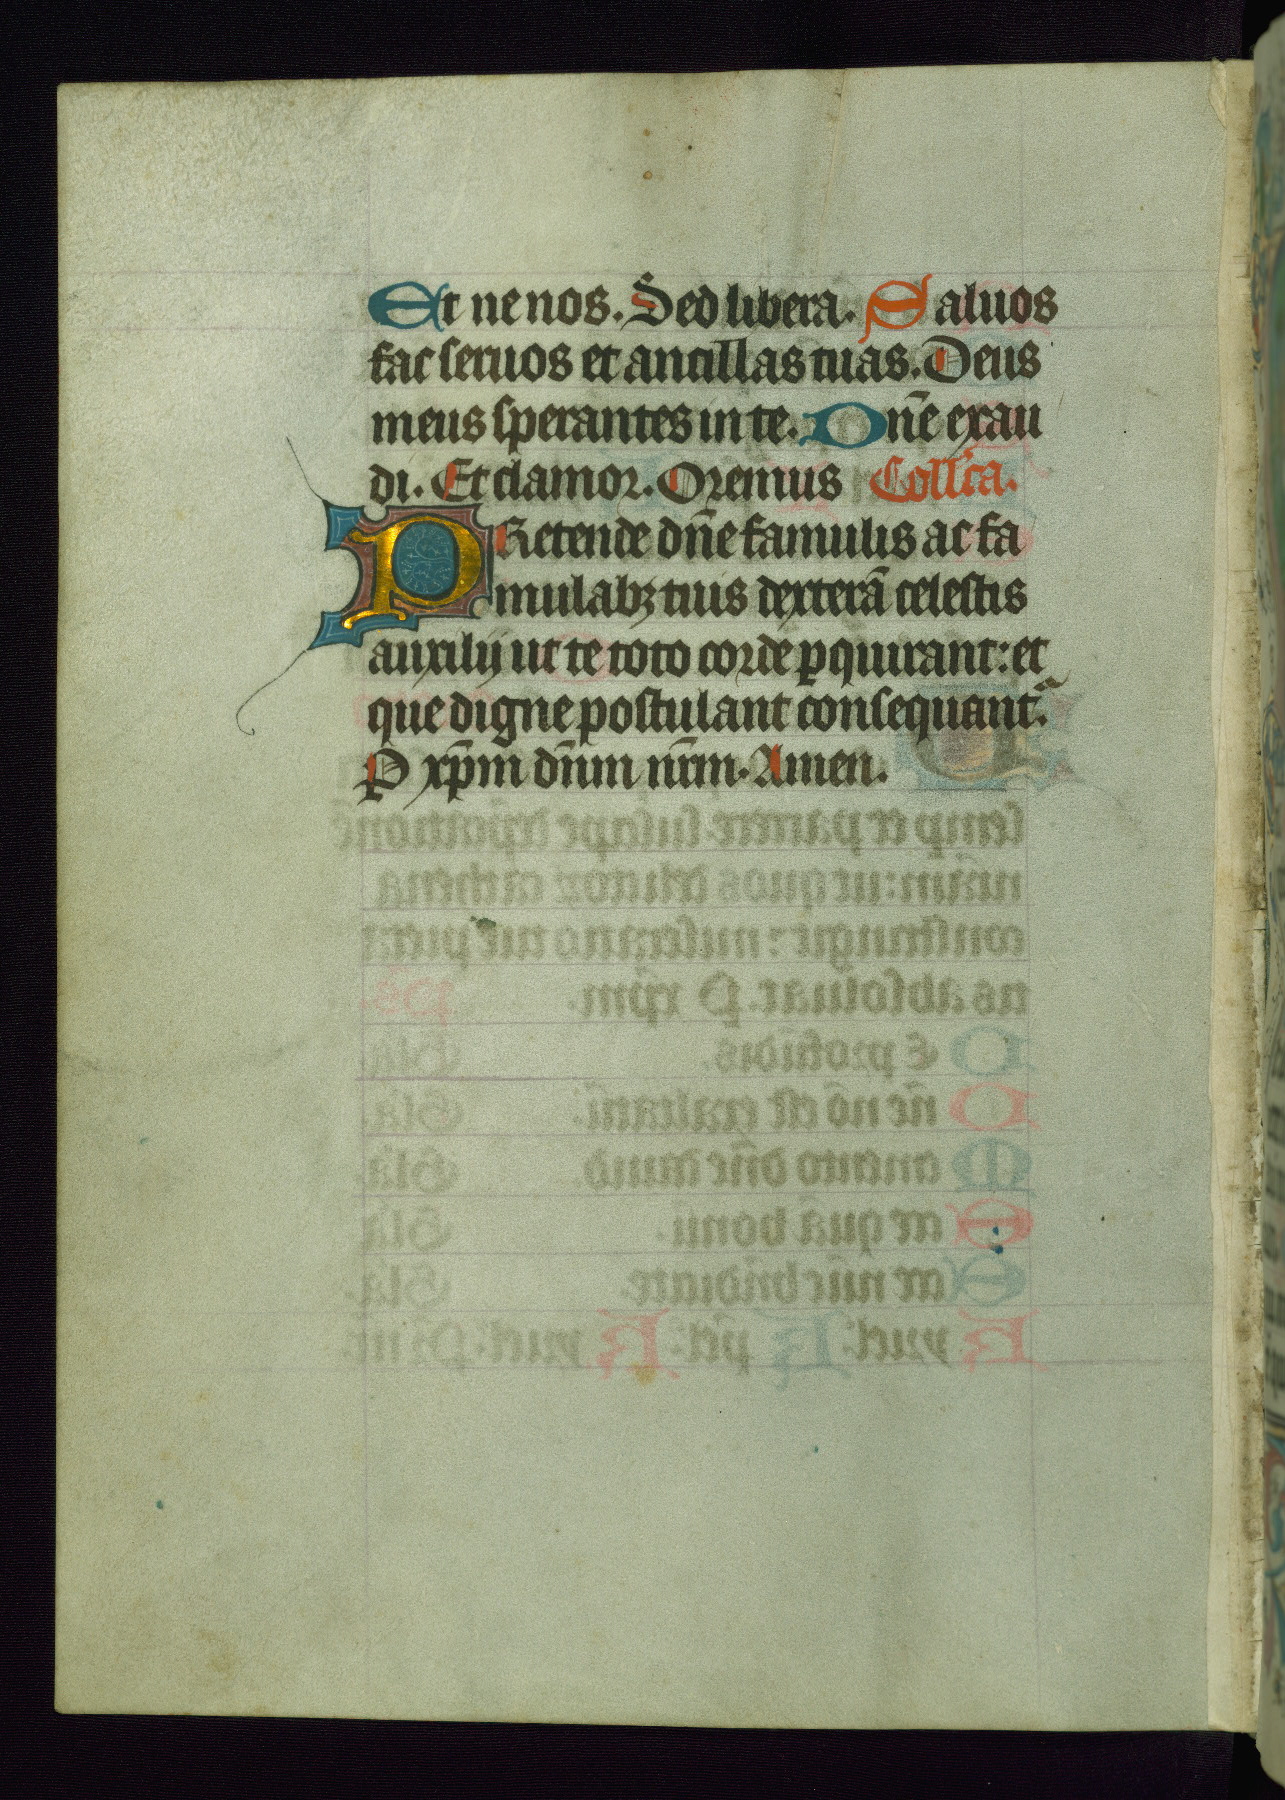 Et ne nos. Sed libera. Saluos
fac seruos et ancillas tuas. Deus
meus sperantes in te. Dn̄e exau
di. Et clamor. Oremus Coll'ca.
PRetende dn̄e famulis ac fa
mulabꝫ tuis dexterā celestis
auxilij ut te toto corde ꝑquirant: et
que digne postulant consequant᷑.
Ꝑ xp̄m dn̄m nr̄m. Amen.